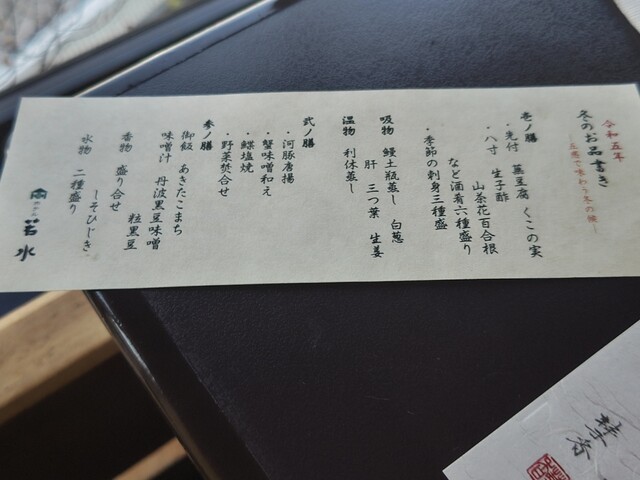 令和五年
冬のお品書き
―五感で味わう冬の候―
壱ノ膳
・先付 蒸豆腐 くこの実
・八寸 生子酢
山茶花百合根
など酒肴六種盛り
・季節の刺身三種盛
吸物 鰻土瓶蒸し 白葱
肝 三つ葉 生姜
温物 利休蒸し
弐ノ膳
・河豚唐揚
・蟹味噌和え
・鰈塩焼
・野菜焚合せ
参ノ膳
御飯 あきたこまち
味噌汁 丹波黒豆味噌
粒黒豆
香物 盛り合せ
しそひじき
水物 二種盛り
若水